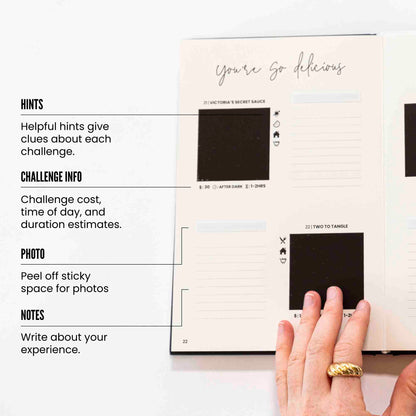 You're so delicious
HINTS
Helpful hints give
clues about each
challenge.
CHALLENGE INFO
Challenge cost,
time of day, and
duration estimates.
PHOTO
Peel off sticky
space for photos
NOTES
Write about your
experience.
21 | VICTORIA'S SECRET SAUCE
$: 30 AFTER DARK 1-2HRS
22 | TWO TO TANGLE
1-2HRS
22